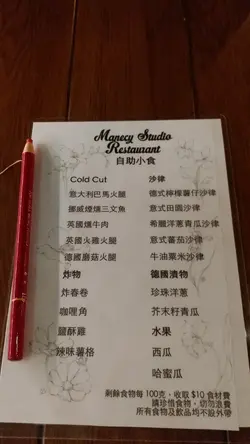 Manecy Studio
Restaurant
自助小食
Cold Cut
意大利巴馬火腿
挪威煙燻三文魚
英國燻牛肉
英國火雞火腿
德國蘑菇火腿
炸物
炸春卷
咖喱角
鹽酥雞
辣味薯格
沙律
德式檸檬薯仔沙律
意式田園沙律
希臘洋蔥青瓜沙律
意式蕃茄沙律
牛油粟米沙律
德國漬物
珍珠洋蔥
芥末籽青瓜
水果
西瓜
哈蜜瓜
剩餘食物每 100克，收取 $10 食材費
請珍惜食物，切勿浪費
所有食物及飲品均不設外帶